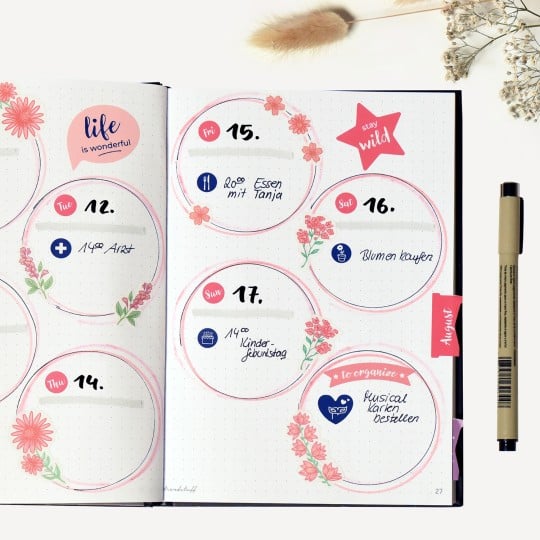 life
is wonderful
Tue
12.
14⁰⁰ Arzt
Thu
14.
Fri
15.
20⁰⁰ Essen
mit Tanja
stay
wild
Sat
16.
Blumen kaufen
Sun
17.
14⁰⁰
Kinder-
geburtstag
August
to organize
Musical
Karten
bestellen
27